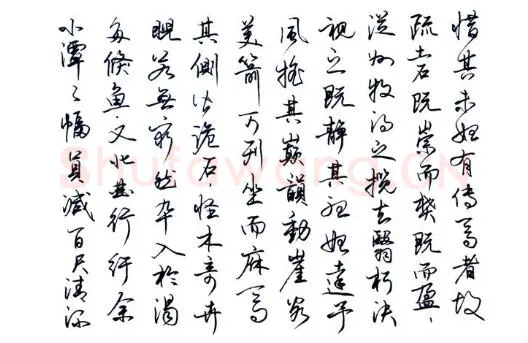 小潭々幅員減百尺清深
多倏鱼又北曲行纡余
睨若無窮然卒入於渴
其侧皆诡石怪木奇卉
美箭可列坐而庥焉
風摇其巅韻動崖谷
視之既静其聽始遠予
從州牧得之揽去翳朽决
疏土石既崇而焚既而盈
惜其未始有傳焉者故
Shufawang.CN